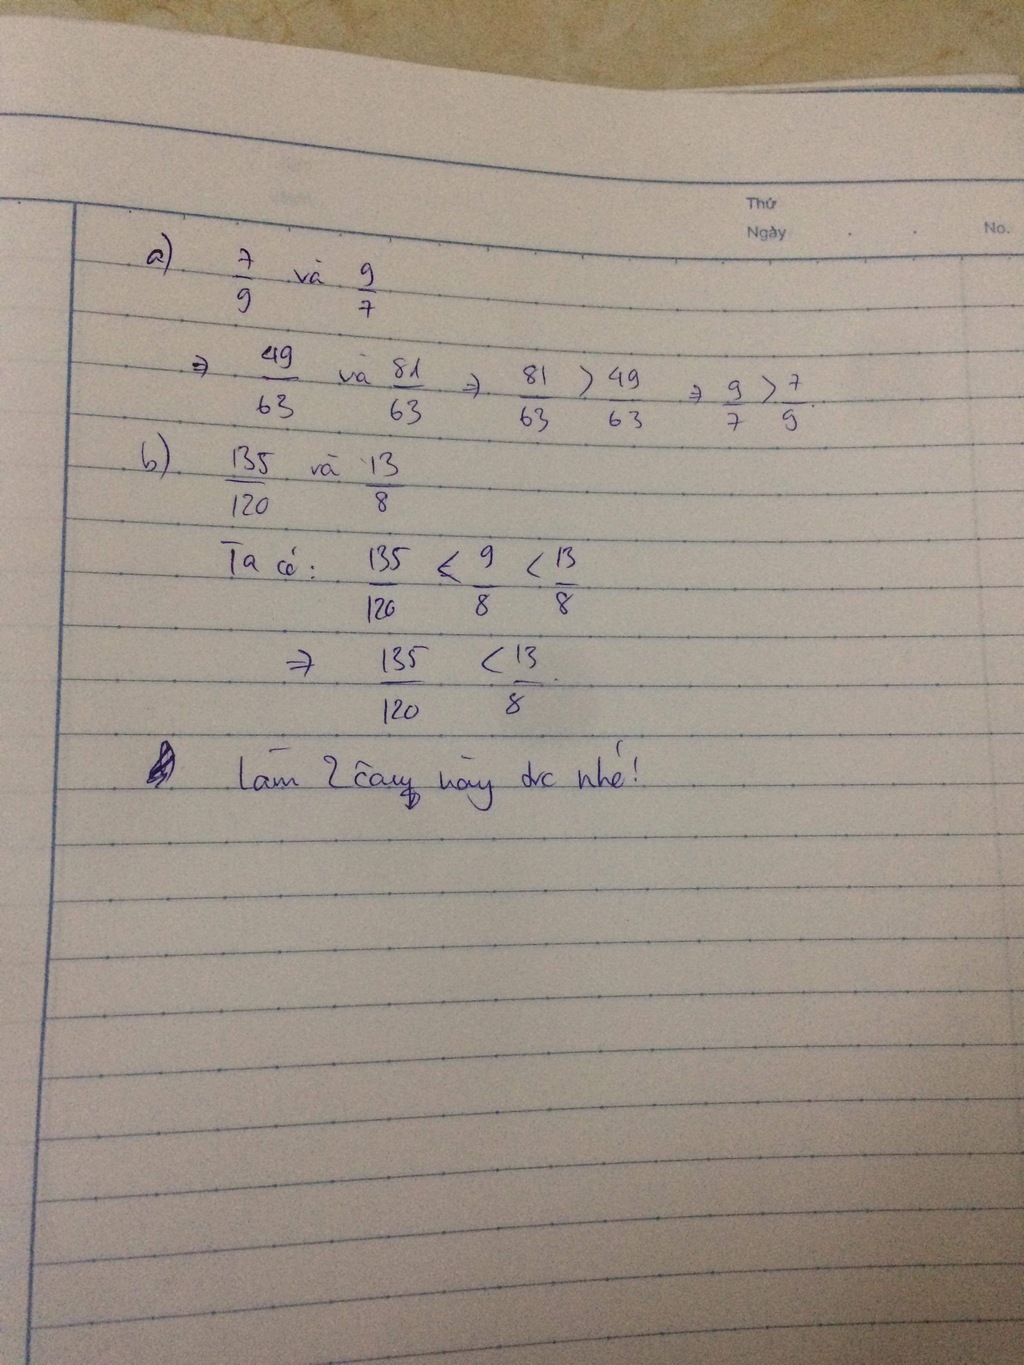 Thứ
Ngày . . No.
a) 7/9 và 9/7
⇒ 49/63 và 81/63 ⇒ 81/63 > 49/63 ⇒ 9/7 > 7/9.
b) 135/120 và 13/8
Ta có: 135/120 ≤ 9/8 < 13/8
⇒ 135/120 < 13/8.
làm 2 này đc nhé!